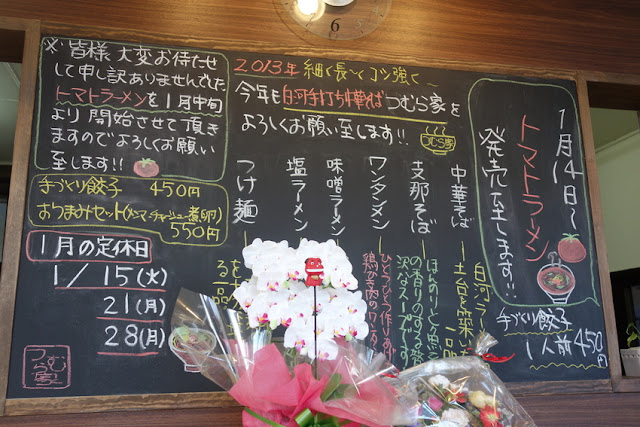 ※皆様大変お待たせ
して申し訳ありませんでした
トマトラーメンを1月中旬
より開始させて頂き
ますのでよろしくお願い
至します!!
手づくり餃子 450円
おつまみセット(メンマ・チャーシュー・煮卵)
550円
1月の定休日
1/15(火)
21(月)
28(月)
つむら家
2013年 細く長〜くコシ強く
今年も白河手打ち中華そばつむら家を
よろしくお願い至します!!
つむら家
中華そば
白河ラー
土台を築いた
一品
支那そば
ほんのりと魚
の香りのする
沢なスープです
ワンタンメン
ひとつひとつ作りあ
鶏
肉のワンタン
味噌ラーメン
塩ラーメン
つけ麺
を
る品
1月14日〜
トマトラーメン
発売至します!!
手づくり餃子
1人前450円
6